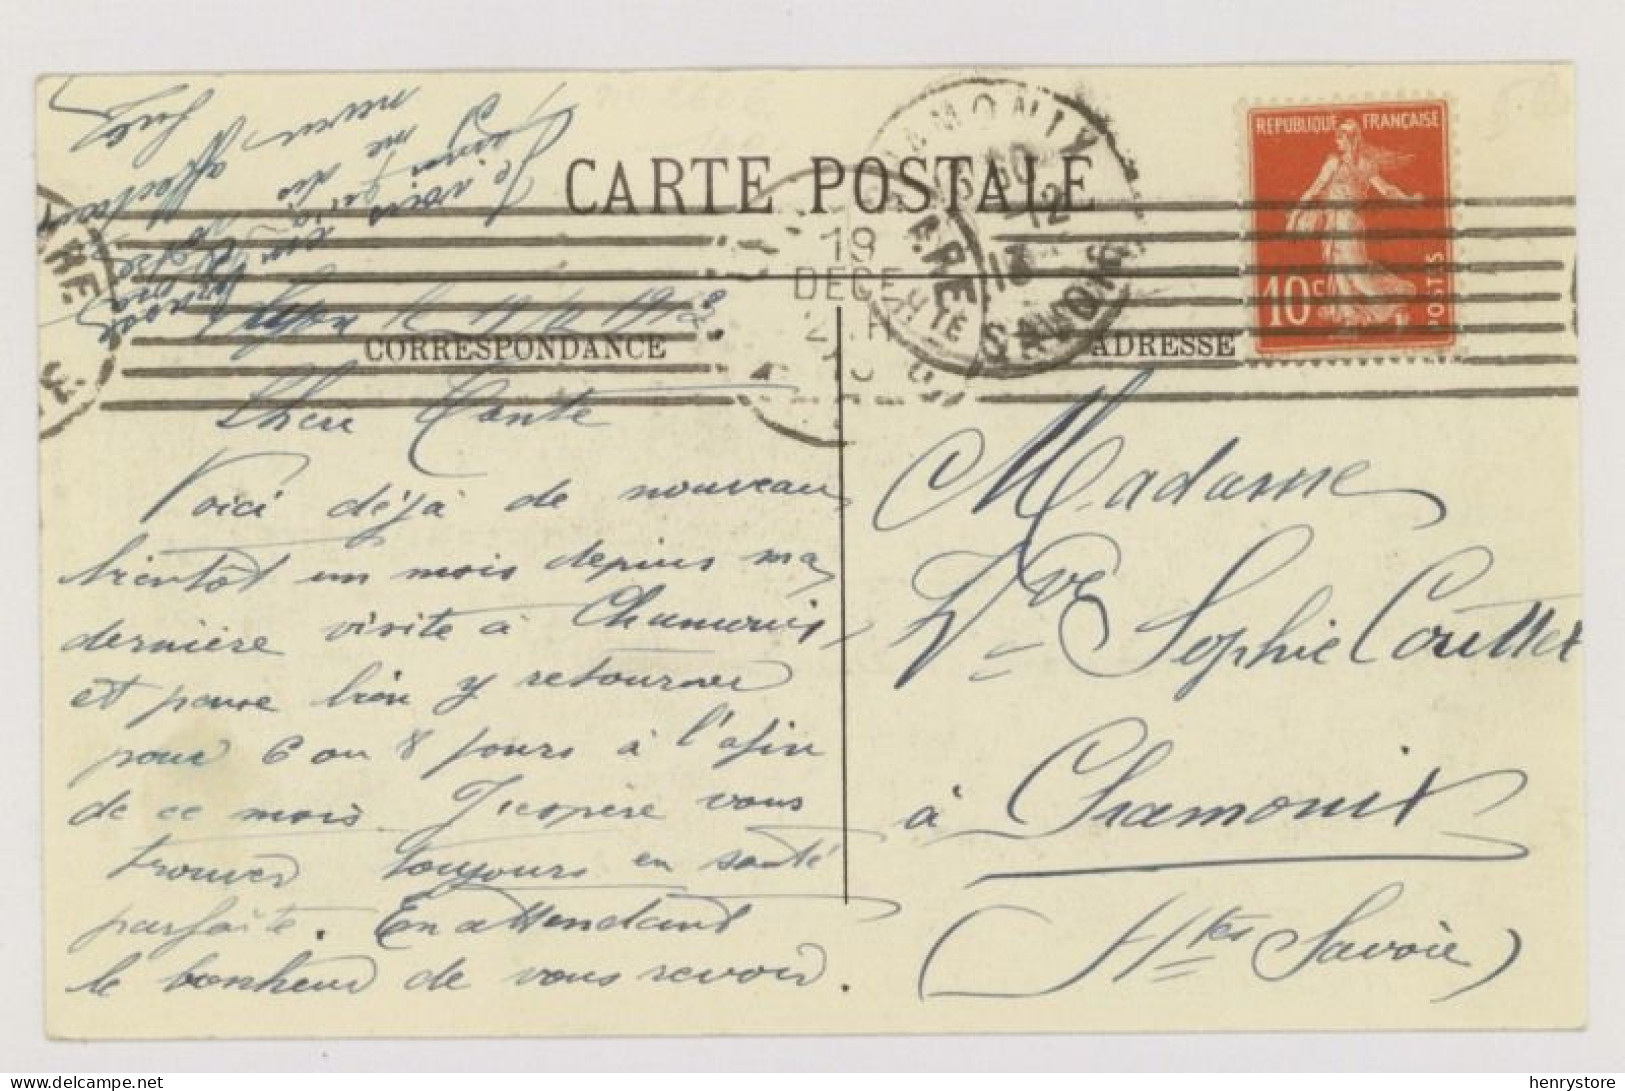 CARTE POSTALE
CORRESPONDANCE
ADRESSE
REPUBLIQUE FRANÇAISE
10c
POSTES
CHAMONIX
12
13
HTE SAVOIE
19
DECE
GARE
Lyon le 19/12 1913
Chère Tante
Voici déjà de nouveau
bientôt un mois depuis ma
dernière visite à Chamonix,
et pense bien y retourner
pour 6 ou 8 jours à l'afin
de ce mois. J'espère vous
trouver toujours en santé
parfaite. En attendant
le bonheur de vous revoir.
Je vois qu'à
me
neveu affectueux
Madame
Vve Sophie Couttet
à Chamonix
(Hte Savoie)
henrystore